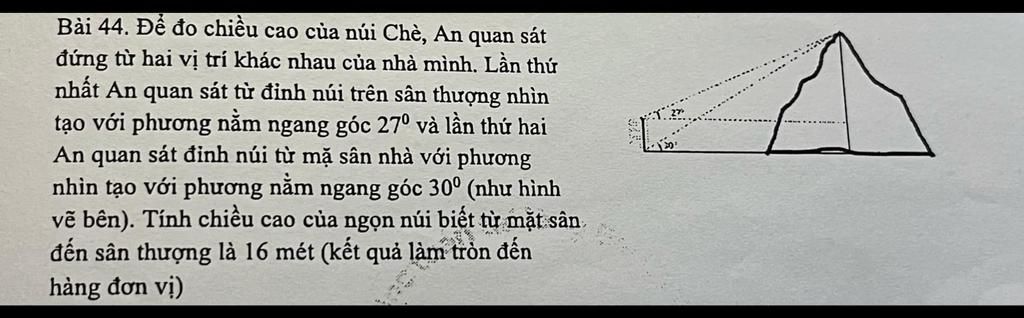 Bài 44. Để đo chiều cao của núi Chè, An quan sát
đứng từ hai vị trí khác nhau của nhà mình. Lần thứ
nhất An quan sát từ đỉnh núi trên sân thượng nhìn
tạo với phương nằm ngang góc 27⁰ và lần thứ hai
An quan sát đỉnh núi từ mặ sân nhà với phương
nhìn tạo với phương nằm ngang góc 30⁰ (như hình
vẽ bên). Tính chiều cao của ngọn núi biết từ mặt sân
đến sân thượng là 16 mét (kết quả làm tròn đến
hàng đơn vị)
27°